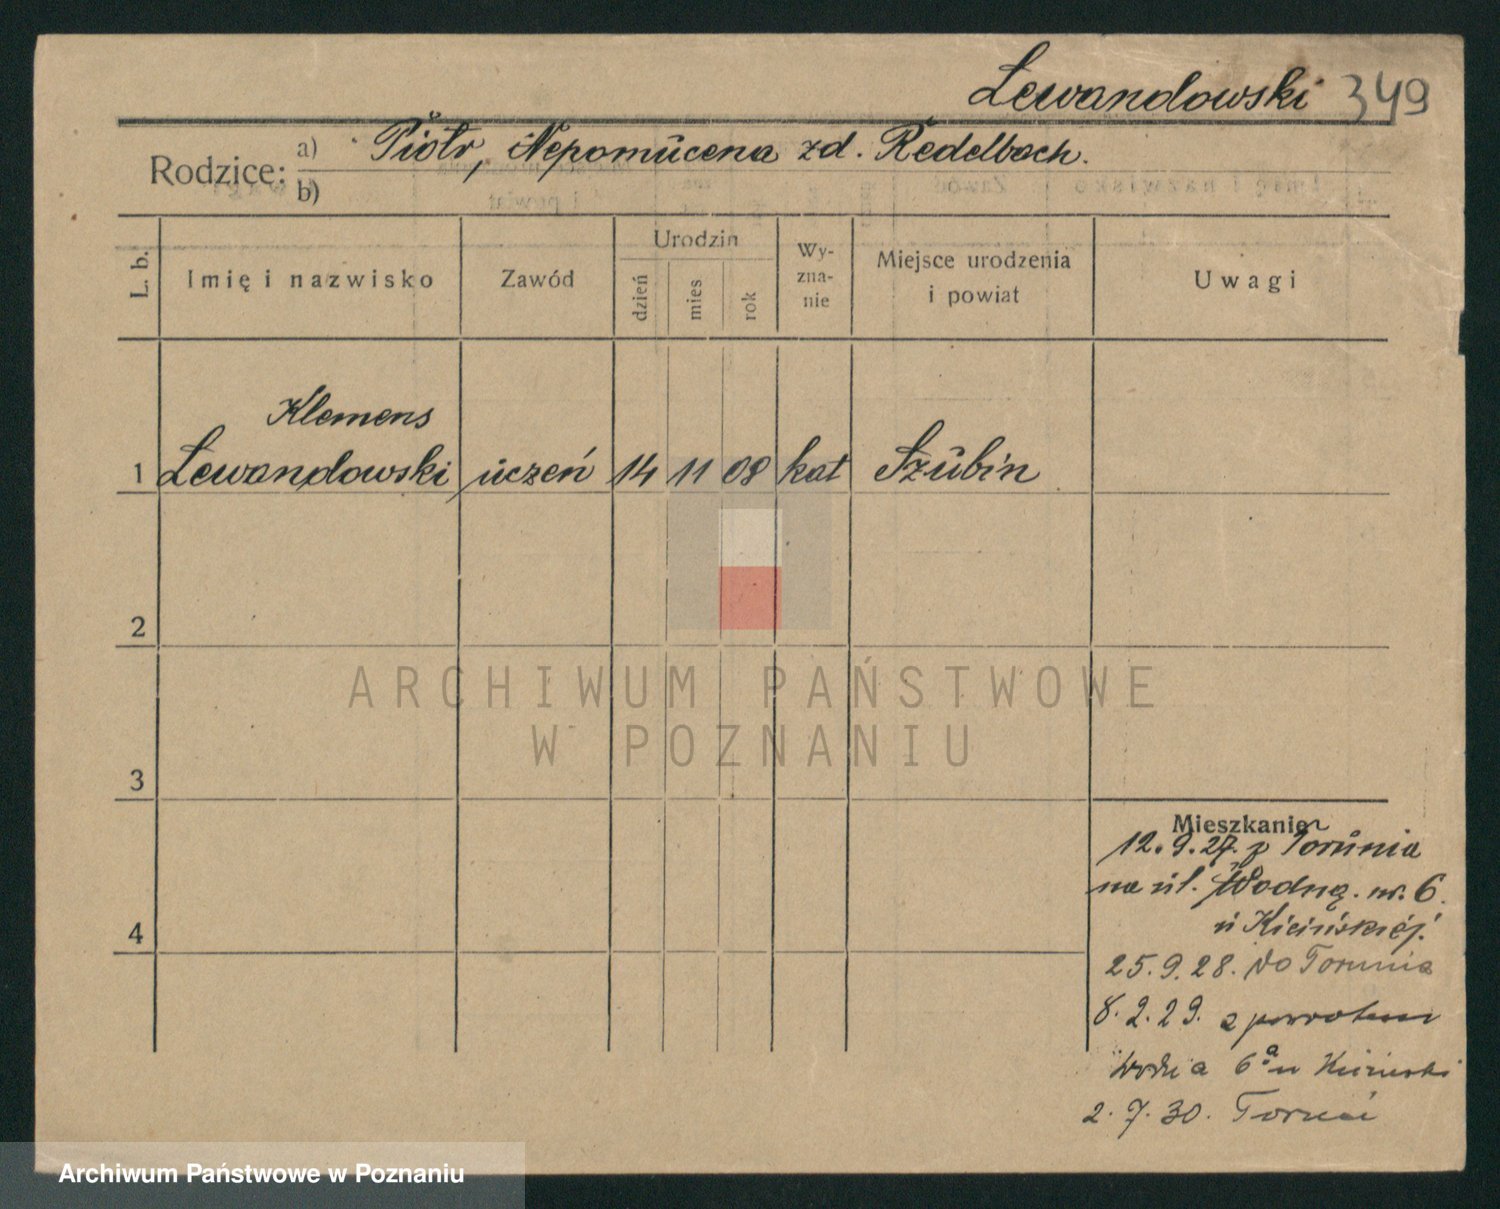 Lewandowski 349
Rodzice: a) Piotr, Nepomucena zd. Redelbach.
b)
L. b. Imię i nazwisko Zawód Urodzin dzień mies rok Wy-zna-nie Miejsce urodzenia i powiat Uwagi
Klemens
1 Lewandowski uczeń 14 11 08 kat Szubin
2
3
4
Mieszkanie
12.9.27. z Torunia
na ul. Wodną. nr. 6.
u Kicińskiéj.
25.9.28. do Torunia
8.2.29. z powrotem
Wodna 6a u
2.7.30. Toruń
ARCHIWUM PAŃSTWOWE
W POZNANIU
Archiwum Państwowe w Poznaniu